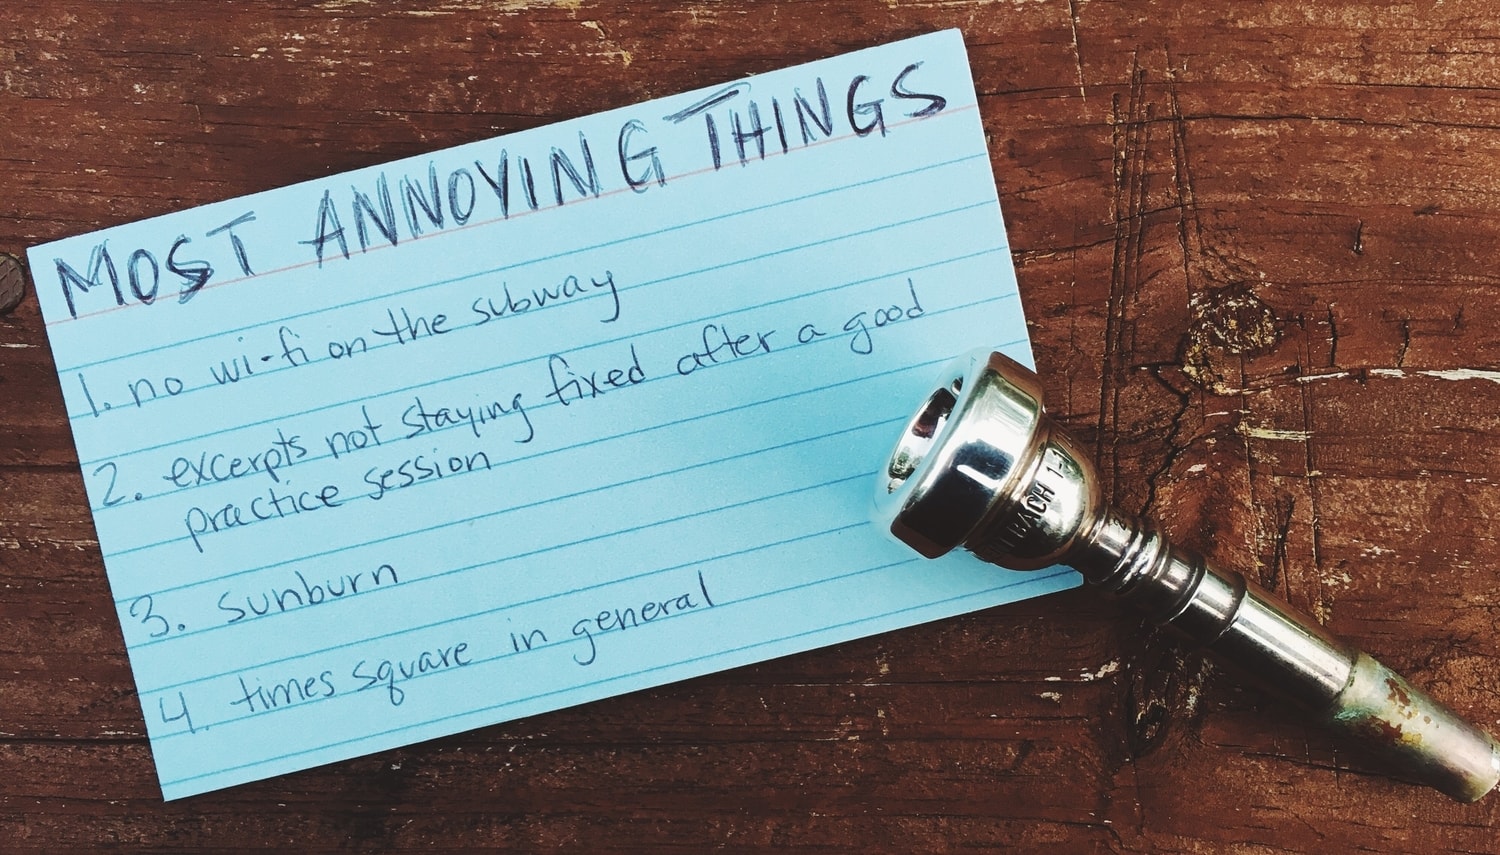 MOST ANNOYING THINGS
1. no wi-fi on the subway
2. excerpts not staying fixed after a good
practice session
3. sunburn
4. times square in general
BACH